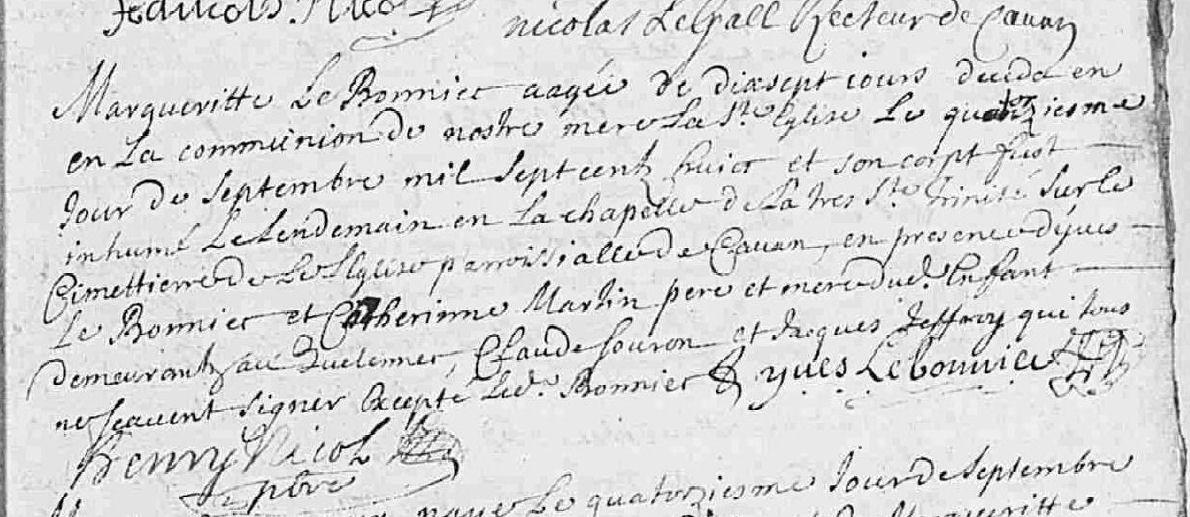 nicolas LeGall Recteur de Cavan
Margueritte Le Bonniec aagée de dixsept iours deceda en
en La communion de nostre mere La Ste Eglise Le quatorziesme
Jour de Septembre mil Sept centz huict et son corpt fust
inhumé Le Lendemain en La chapelle de La tres Ste Trinité Sur le
Cimettierre de Le Eglise parroissialle de Cavan, en presence d'yves
Le Bonniec et Catherinne Martin pere et mere dud. Enfant
demeurantz au Quelennec, Claude Souron et Jacques Jeffroy qui tous
ne scavent signer Excepté Led. Bonniec & yves Le bonniec
Henry Nicol
pbre
Le quatorziesme Jour de Septembre
Margueritte